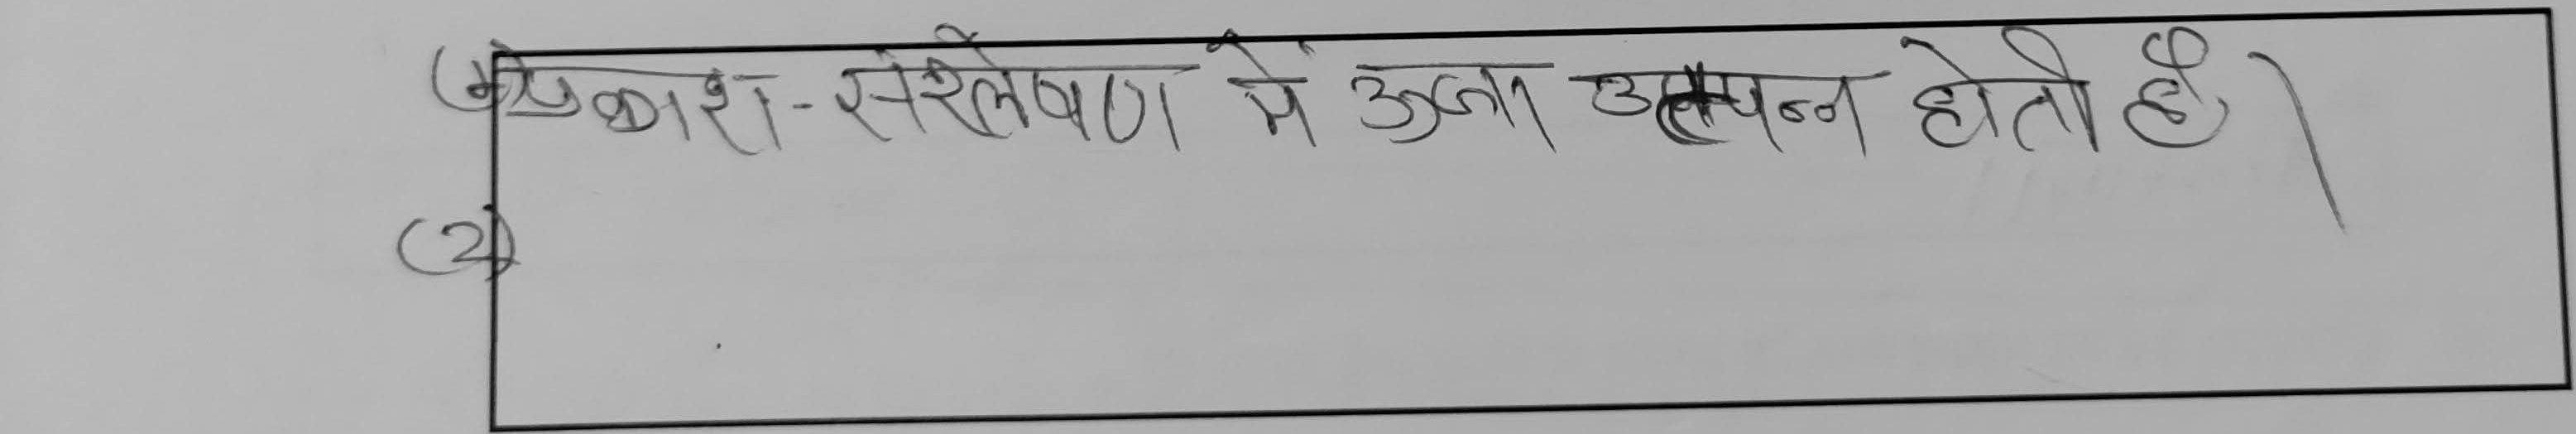 (1) प्रकाश-संश्लेषण में ऊर्जा उत्पन्न होती है।
(2)